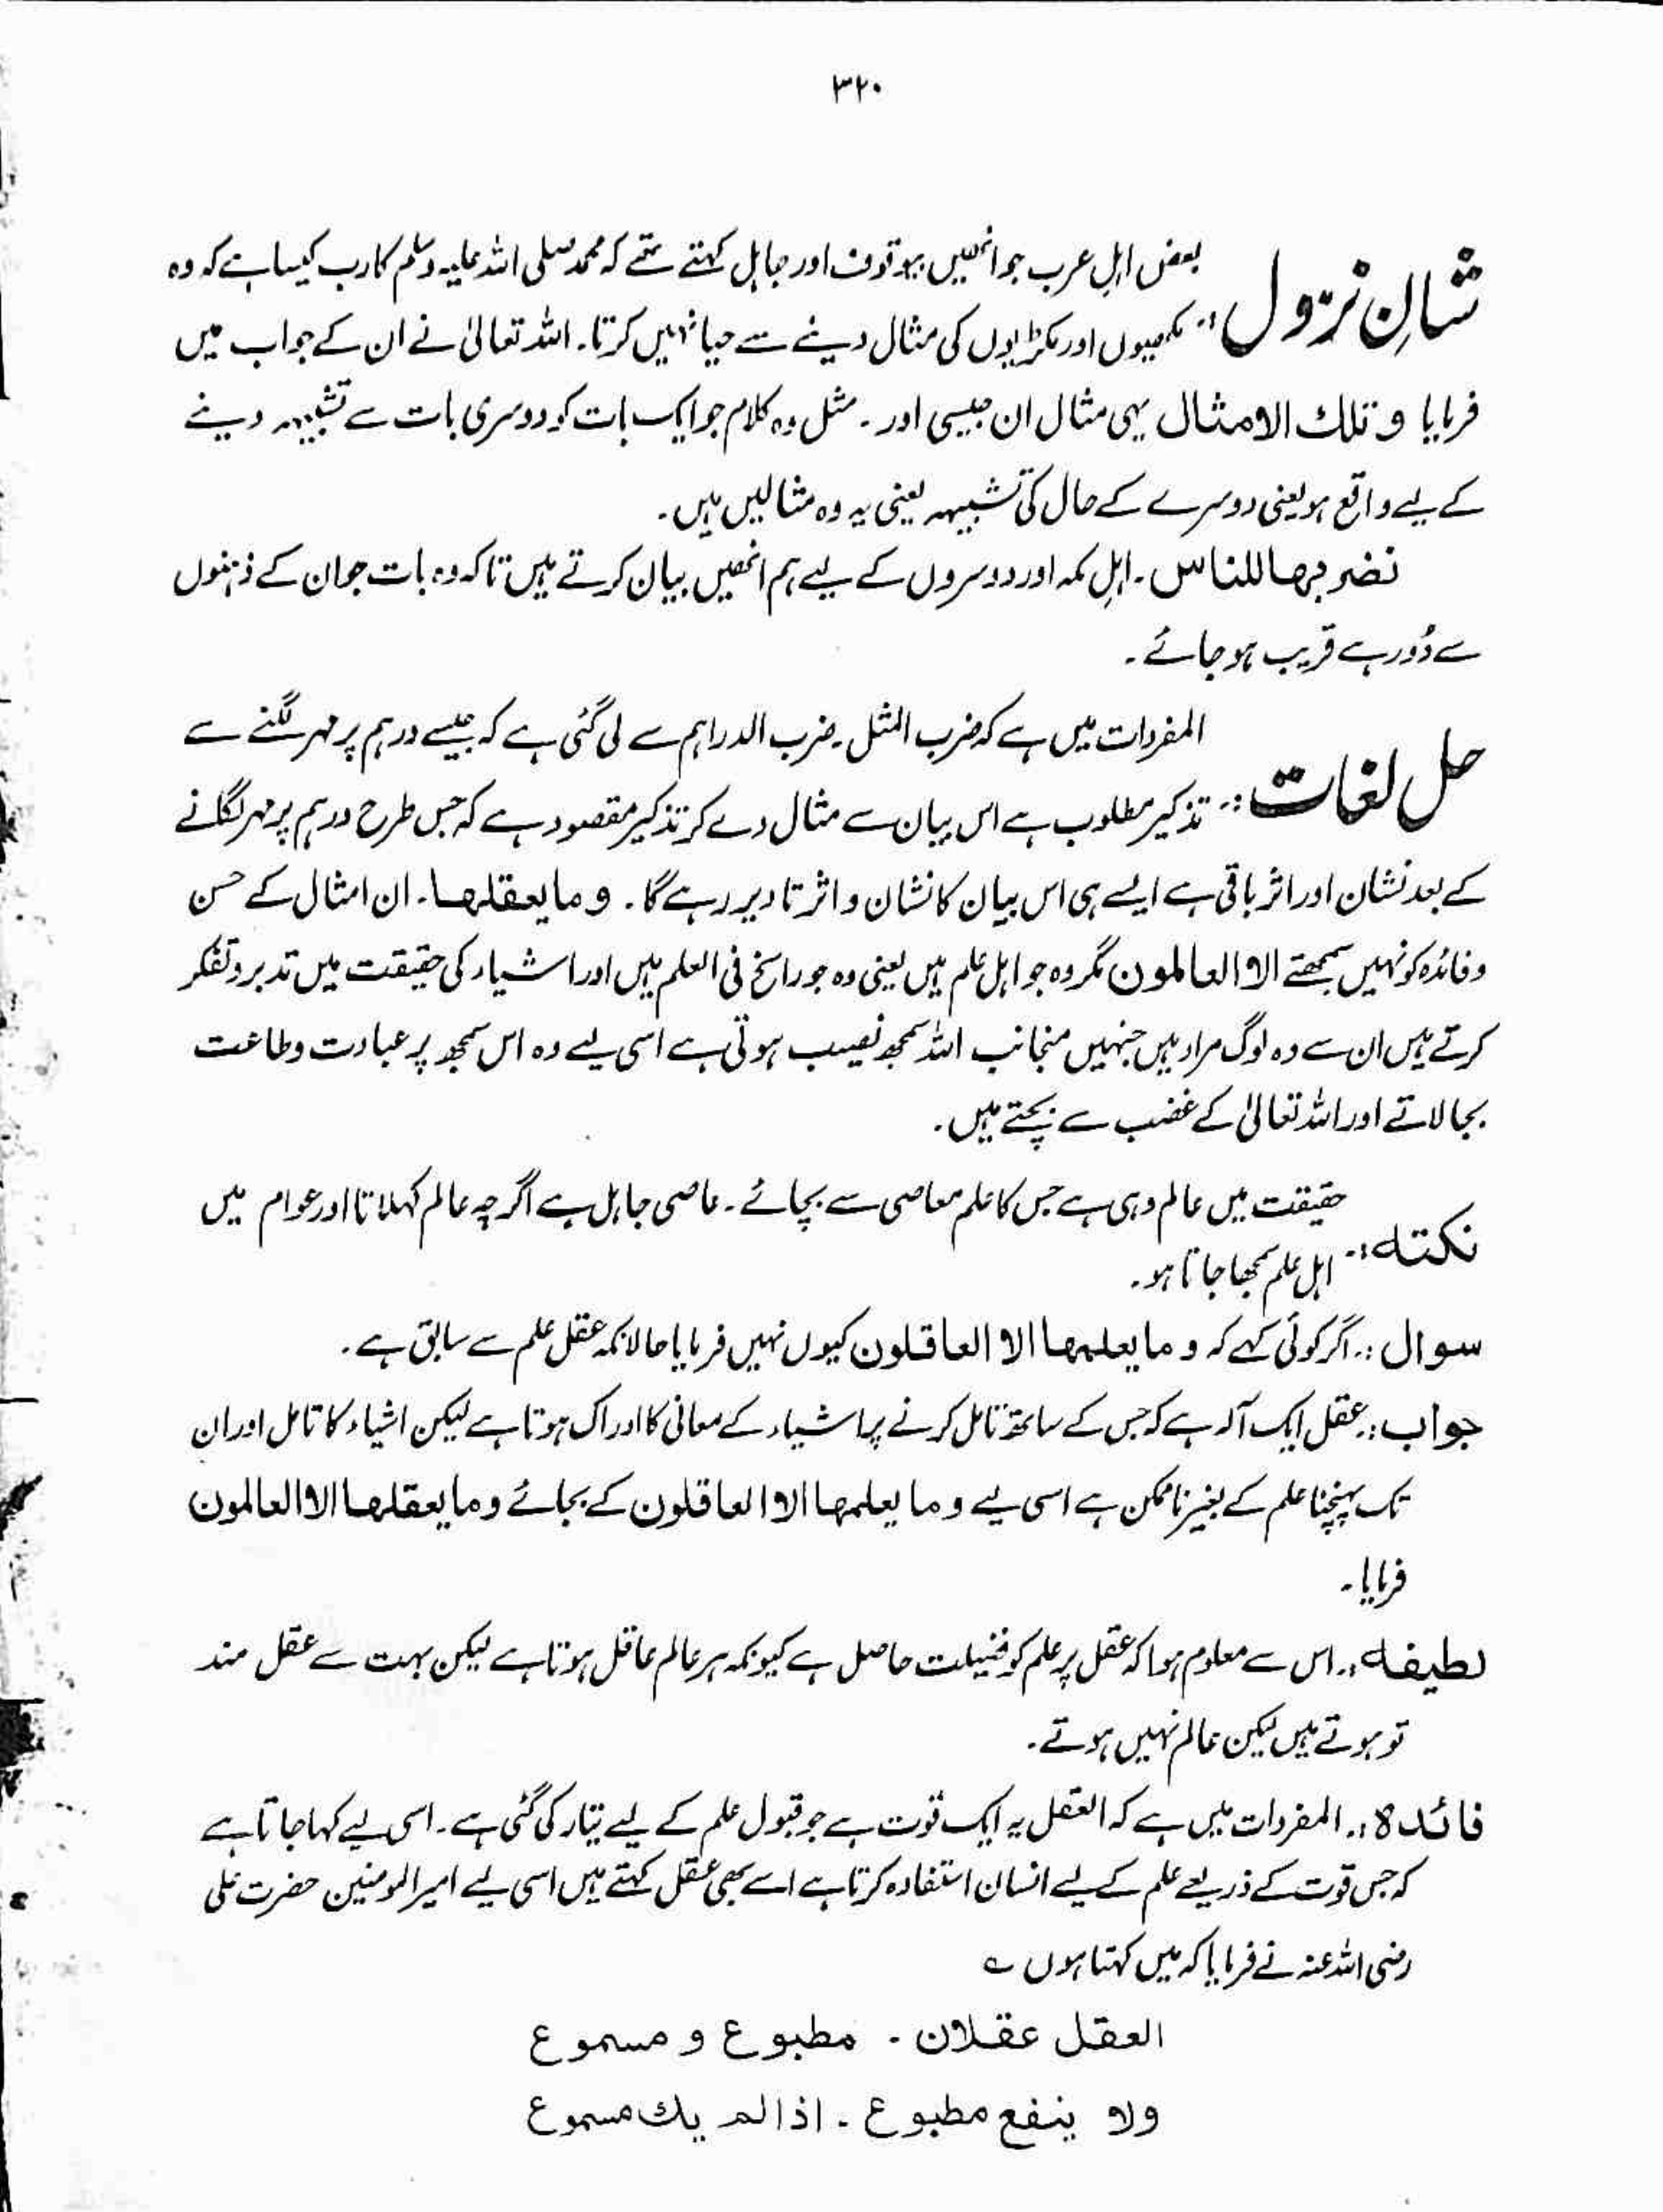 ۳۲۰
شانِ نزول:۔ بعض اہلِ عرب جو انھیں بیوقوف اور جاہل کہتے تھے کہ محمد صلی اللہ علیہ وسلم کا رب کیسا ہے کہ وہ
مکھیوں اور مکڑیوں کی مثال دینے سے حیا نہیں کرتا۔ اللہ تعالیٰ نے ان کے جواب میں
فرمایا و تلك الامثال یہی مثال ان جیسی اور۔ مثل وہ کلام جو ایک بات کو دوسری بات سے تشبیہہ دینے
کے لیے واقع ہو یعنی دوسرے کے حال کی تشبیہہ یعنی یہ وہ مثالیں ہیں۔
نضربها للناس۔ اہلِ مکہ اور دوسروں کے لیے ہم انھیں بیان کرتے ہیں تاکہ وہ بات جو ان کے ذہنوں
سے دُور ہے قریب ہو جائے۔
حل لغات:۔ المفردات میں ہے کہ ضرب المثل۔ ضرب الدراہم سے لی گئی ہے کہ جیسے درہم پر مہر لگنے سے
تذکیر مطلوب ہے اس بیان سے مثال دے کر تذکیر مقصود ہے کہ جس طرح درہم پر مہر لگانے
کے بعد نشان اور اثر باقی ہے ایسے ہی اس بیان کا نشان و اثر تا دیر رہے گا۔ وما یعقلها۔ ان امثال کے حسن
و فائدہ کو نہیں سمجھتے الا العالمون مگر وہ جو اہل علم ہیں یعنی وہ جو راسخ فی العلم ہیں اور اشیاء کی حقیقت میں تدبر و تفکر
کرتے ہیں ان سے وہ لوگ مراد ہیں جنہیں منجانب اللہ سمجھ نصیب ہوتی ہے اسی لیے وہ اس سمجھ پر عبادت و طاعت
بجا لاتے اور اللہ تعالیٰ کے غضب سے بچتے ہیں۔
نکتہ:۔ حقیقت میں عالم وہی ہے جس کا علم معاصی سے بچائے۔ عاصی جاہل ہے اگرچہ عالم کہلاتا اور عوام میں
اہل علم سمجھا جاتا ہو۔
سوال:۔ اگر کوئی کہے کہ وما یعلمها الا العاقلون کیوں نہیں فرمایا حالانکہ عقل علم سے سابق ہے۔
جواب:۔ عقل ایک آلہ ہے کہ جس کے ساتھ تامل کرنے پر اشیاء کے معانی کا ادراک ہوتا ہے لیکن اشیاء کا تامل اور ان
تک پہنچنا علم کے بغیر ناممکن ہے اسی لیے وما یعلمها الا العاقلون کے بجائے وما یعقلها الا العالمون
فرمایا۔
لطیفہ:۔ اس سے معلوم ہوا کہ عقل پر علم کو فضیلت حاصل ہے کیونکہ ہر عالم عاقل ہوتا ہے لیکن بہت سے عقل مند
تو ہوتے ہیں لیکن عالم نہیں ہوتے۔
فائدہ:۔ المفردات میں ہے کہ العقل یہ ایک قوت ہے جو قبول علم کے لیے تیار کی گئی ہے۔ اسی لیے کہا جاتا ہے
کہ جس قوت کے ذریعے علم کے لیے انسان استفادہ کرتا ہے اسے بھی عقل کہتے ہیں اسی لیے امیر المومنین حضرت علی
رضی اللہ عنہ نے فرمایا کہ میں کہتا ہوں ؎
العقل عقلان ۔ مطبوع و مسموع
ولا ینفع مطبوع ۔ اذا لم یك مسموع